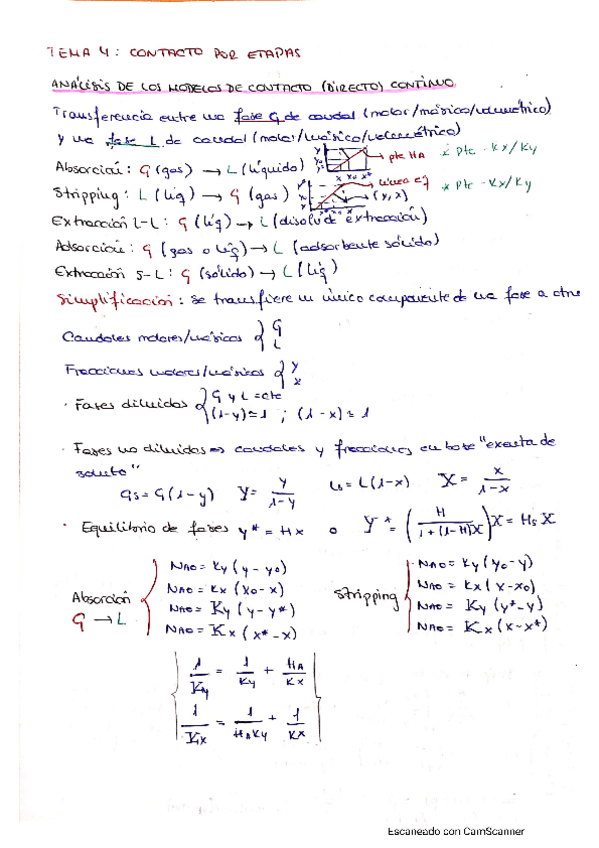 TEMA 4: CONTACTO POR ETAPAS
ANÁLISIS DE LOS MODELOS DE CONTACTO (DIRECTO) CONTINUO
Transferencia entre una fase G de caudal (molar/másico/volumétrico)
y una fase L de caudal (molar/másico/volumétrico)
Absorción: G (gas) → L (líquido) pte HA * Pte - Kx/Ky
Stripping: L (líq) → G (gas) línea eq (x, x) * Pte - Kx/Ky
Extracción L-L: G (líq) → L (disolv de extracción)
Adsorción: G (gas o líq) → L (adsorbente sólido)
Extracción S-L: G (sólido) → L (líq)
Simplificación: se transfiere un único componente de una fase a otra
Caudales molares/másicos { G L
Fracciones molares/másicas { y x
· Fases diluidas { G y L = cte (1-y)≃1 ; (1-x)≃1
· Fases no diluidas ⇒ caudales y fracciones en base "exenta de
soluto"
Gs = G(1-y) Y = y/1-y Ls = L(1-x) X = x/1-x
· Equilibrio de fases y* = Hx o Y* = (H/1+(1-H)X)X = Hs X
Absorción G → L
NAO = ky (y - y0)
NAO = kx (x0 - x)
NAO = Ky (y - y*)
NAO = Kx (x* - x)
Stripping
NAO = ky (y0 - y)
NAO = kx (x - x0)
NAO = Ky (y* - y)
NAO = Kx (x - x*)
1/Ky = 1/ky + HA/kx
1/Kx = 1/HA ky + 1/kx
Escaneado con CamScanner